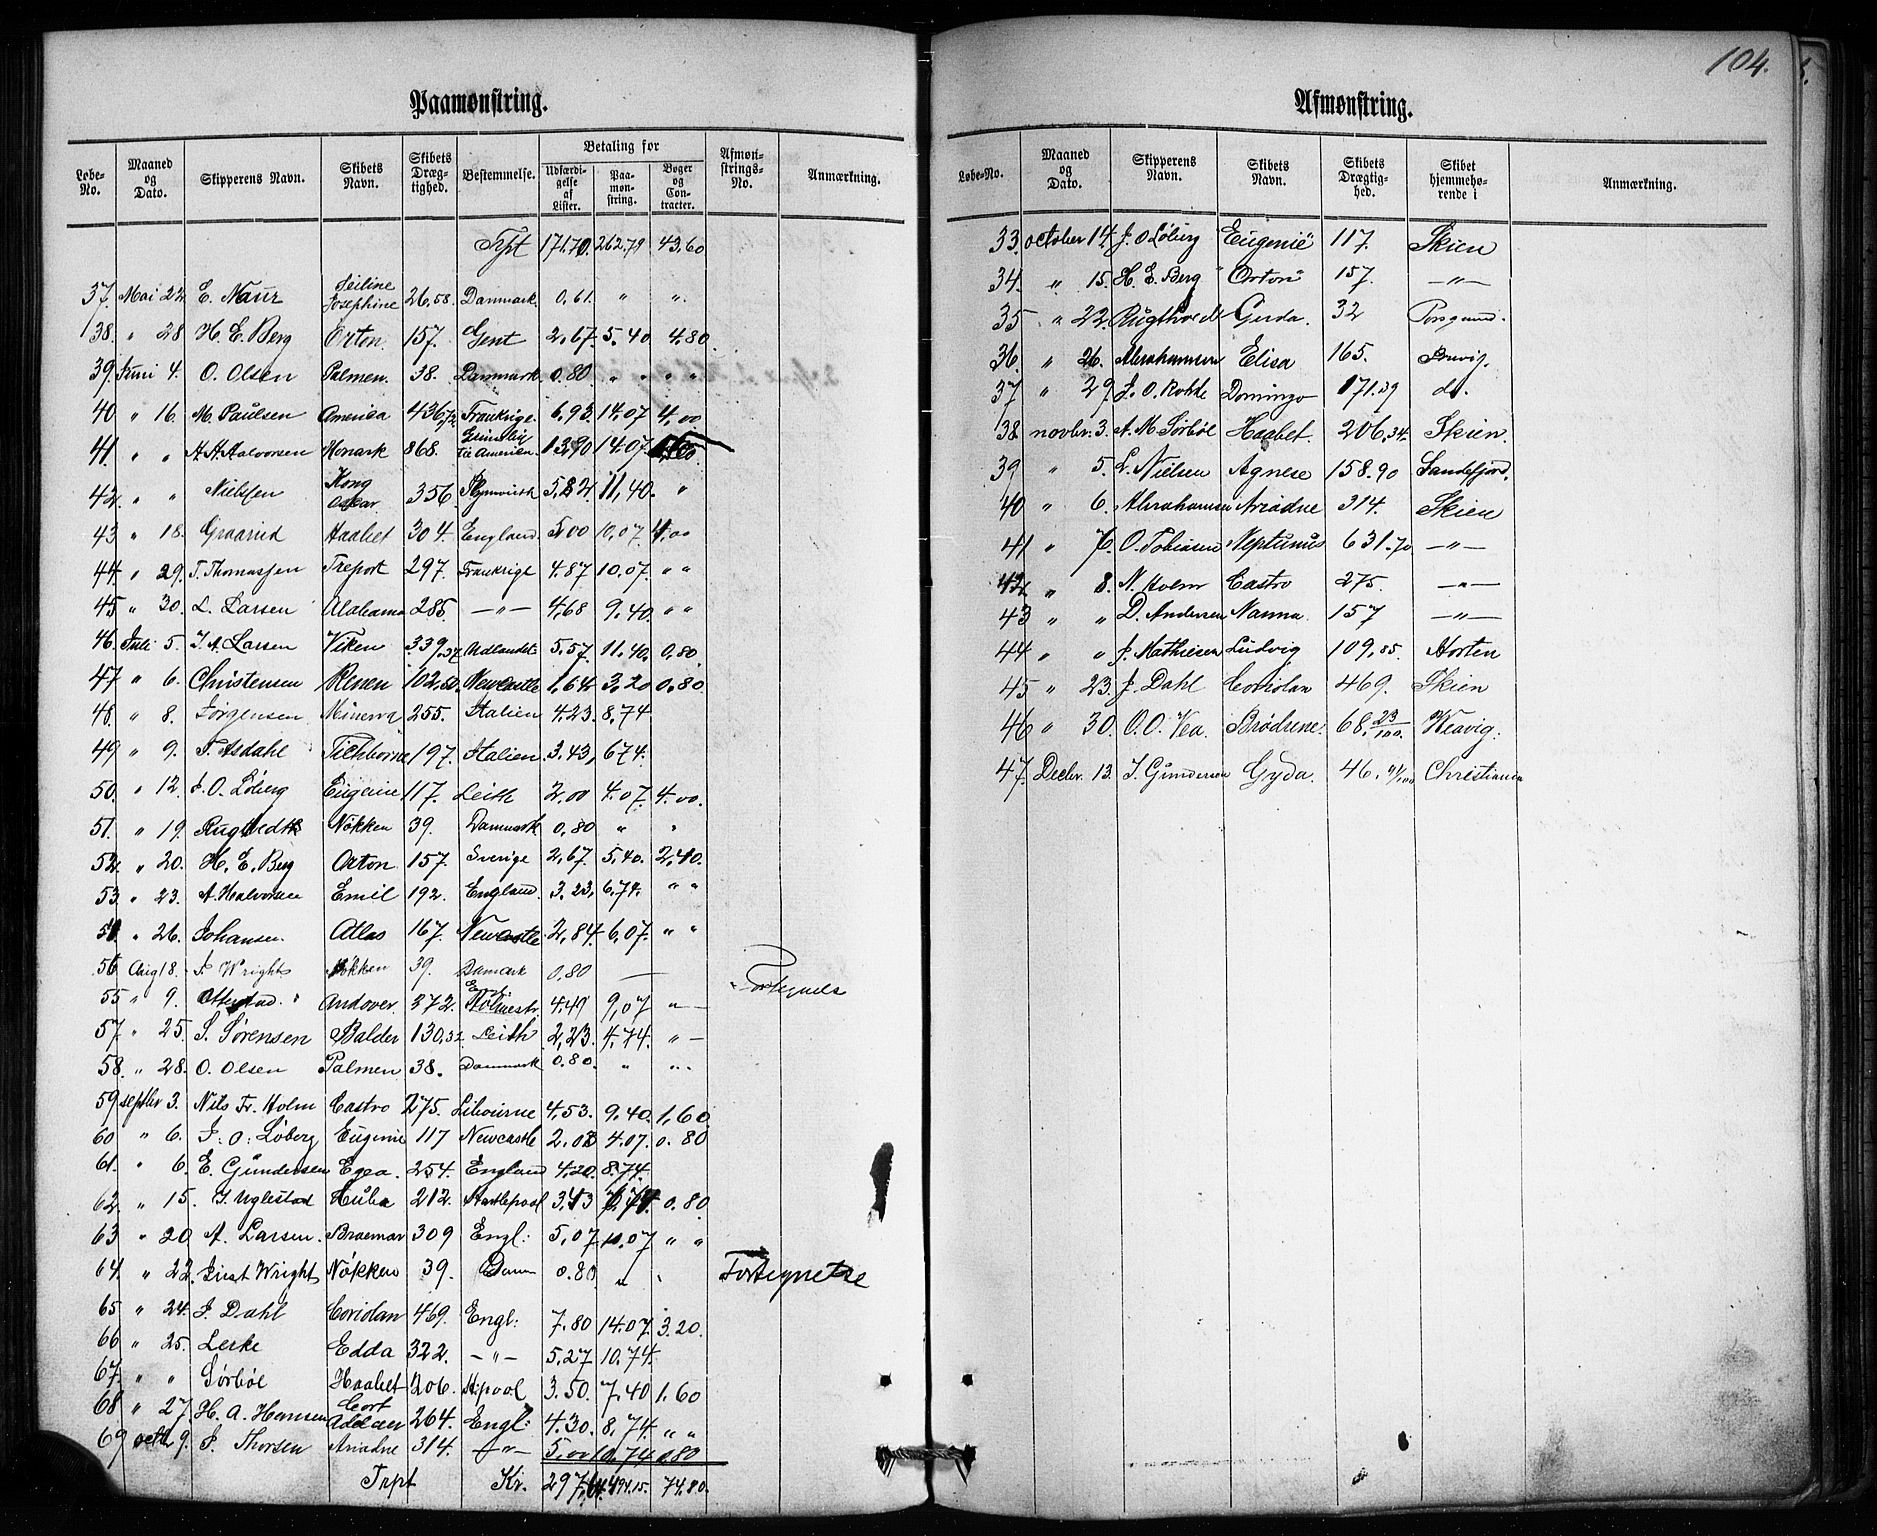 104.
Paamønstring.
Løbe-No. | Maaned og Dato. | Skipperens Navn. | Skibets Navn. | Skibets Drægtighed. | Bestemmelse. | Betaling for Udfærdigelse af Lister. | Paamønstring. | Bøger og Contracter. | Afmønstrings-No. | Anmærkning.
Trpt 171.70. 262.79 43.60
37. Mai 22. E. Naur Josephine 26,58. Danmark. 0.61. " "
38. " 28 H. E. Berg Orton. 157. Gent 2,67. 5.40 4.80
39. Juni 4. O. Olsen Palmen. 38. Danmark. 0.80 " " " "
40 " 16. M. Paulsen America 436,72 Frankrige. 6,93. 14,07 4,00
41. " " A. H. Halvorsen Monark 868. 13,90 14.07.
42. " " Nielsen Kong Oscar. 356. 5,82 11,40. "
43 " 18. Graarud Haabet 304. England. 5,00 10,07. 4.00
44. " 29. T. Thomassen Treport 297. Frankrige 4.87 10.07. " "
45. " 30. L. Larsen Alabama 285. — " — 4,68 9.40. " "
46. Juli 5. J. A. Larsen Viken 339,37 Udlandet 5,57. 11.40. 0,80.
47 " 6. Christensen 102,50. Newcastle 1,64. 3,20 0,80.
48. " 8. Jørgensen Minerva 255. Italien 4.23. 8,74
49 " 9. Tichborne 197. Italien. 3.43, 6,74.
50. " 12. J. O. Løberg Eugenie 117. Leith 2,00 4.07. 4.00.
51. " 19. Nøkken 39. Danmark. 0,80 " "
52. " 20. H. E. Berg Orton. 157. Sverige 2,67. 5,40. 2,40.
53. " 23. A. Halvorsen Emil 192. England. 3.23, 6,74. " "
" 26. Johansen. Atlas 167. Newcastle. 2,84. 6,07. " "
56. Aug 18. J Wright Nøkken 39. Danmark 0.80 —
55 " 9. Otterstad. Andover. 372. 4.49 9,07 " —
57. " 25. S. Sørensen Balder 130,32 Leith 2,23. 4.74. " —
58. " 28. O. Olsen Palmen 38. Danmark 0.80. " " "
59 septbr 3. Nils Fr. Holm Castro 275. Libourne 4,53. 9.40. 1,60.
60 " 6. J. O. Løberg Eugenie 117 Newcastle 2.00 4.07. 0.80
61. " 6. E. Gundersen Egea. 254. England 4.20. 8.74.
62. " 15. J. Uglestad Huba 212. 3,43 0.80
63 " 20 A. Larsen. Braemar 309 Engl: 5,07 10,07 " "
64. " 22. Wright Nøkken 39. Danm 0.80 " " Fortegnelse
65 " 24. J. Dahl Coriolan 469. Engl: 7.80 14.07. 3.20.
66 " 25. Lerke Edda 322. — " — 5,27 10.74.
67. " " Sørbøl Haabet 206. H.pool 3.50. 7.40 1.60
68 " 27. H. A. Hansen Cort Adelaer 264. Engl: 4.30. 8,74. " "
69 octbr 9. J. Thorsen Ariadne 314. — " — 5,00 10,74 0,80
Trpt Kr. 494.15. 74.80.
Afmønstring.
Løbe-No. | Maaned og Dato. | Skipperens Navn. | Skibets Navn. | Skibets Drægtighed. | Skibet hjemmehørende i | Anmærkning.
33. october 14. J. O Løberg "Eugenie" 117. Skien
34. " 15. H. E. Berg "Orton" 157. — " —
35 " 22. Rugtvedt Gerda. 32 Porsgrund.
36. " 26. Abrahamsen Elisa 165. Brevig.
37 " 29. J. O. Rohde Domingo 171.39 do.
38 novbr. 3. A. M. Sørbøl Haabet 206,34. Skien.
39 " 5. L. Nielsen Agnese 158.90 Sandefjord.
40 " 6. Abrahamsen Ariadne 314. Skien
41 " 7. O. Tobiasen Neptunus 631.70 — " —
42 " 8. N. Holm Castro 275. — " —
43 " " D. Andersen Nanna. 157 — " —
44 " " J. Mathiesen Ludvig 109,85. Horten
45 " 23. J. Dahl Coriolan 469. Skien
46 " 30. O. O. Vea. Brødrene. 68. 23/100.
47. Decbr. 13. J. Gundersen Gyda. 46. Christiania